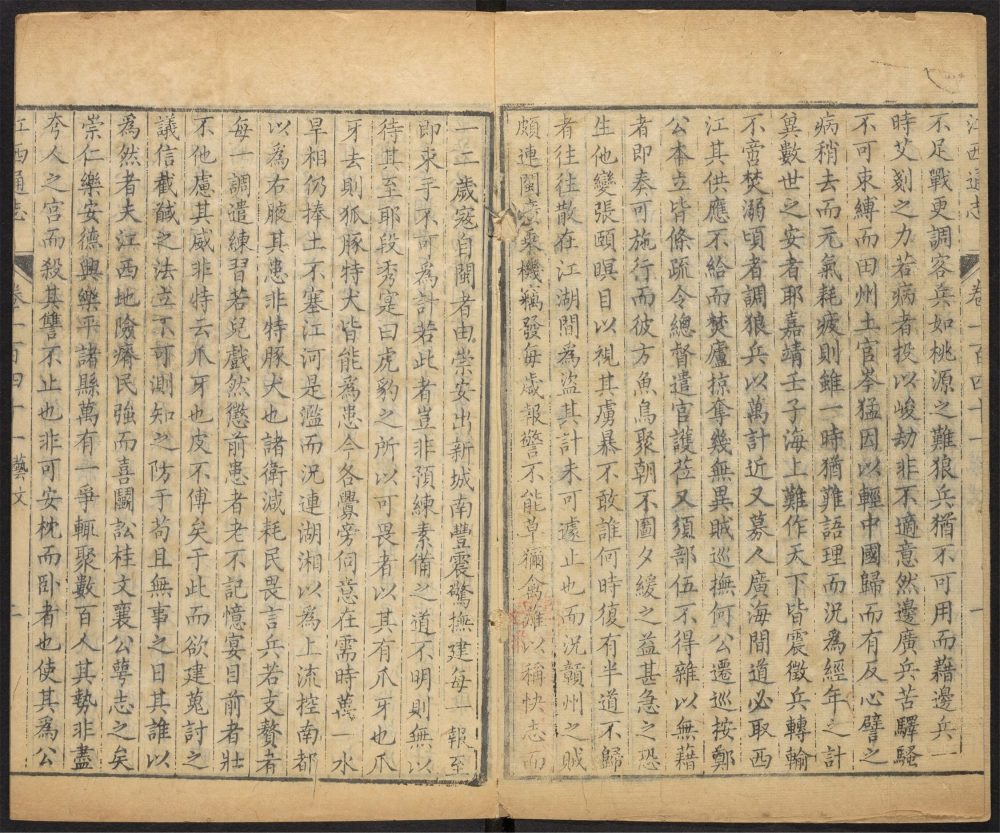 江西通志　卷一百四十一　一
不足戰更調客兵如桃源之難狼兵猶不可用而藉邊兵一
時艾刻之力若病者投以峻劫非不適意然邊廣兵苦驛騷
不可束縛而田州土官岑猛因以輕中國歸而有反心譬之
病稍去而元氣耗疲則雖一時猶難語理而況為經年之計
冀數世之安者耶嘉靖壬子海上難作天下皆震徵兵轉輸
不啻焚溺頃者調狼兵以萬計近又募人廣海間道必取西
江其供應不給而焚廬掠奪幾無異賊巡撫何公遷巡按鄭
公本立皆條疏令總督遣官護莅又須部伍不得雜以無藉
者即奏可施行而彼方魚鳥聚朝不圖夕緩之益甚急之恐
生他變張頤瞑目以視其虜暴不敢誰何時復有半道不歸
者往往散在江湖間為盜其計未可遽止也而況贛州之賊
頗連閩廣乘機竊發每歲報警不能草獮禽薙以稱快志而
一二歲寇自閩者由崇安出新城南豐震驚撫建每一報至
即束手不可為計若此者豈非預練素備之道不明則無以
待其至耶段秀寔曰虎豹之所以可畏者以其有爪牙也爪
牙去則狐豚特犬皆能為患今各釁旁伺意在需時萬一水
旱相仍捧土不塞江河是濫而況連湖湘以為上流控南都
以為右腋其患非特豚犬也諸衛減耗民畏言兵若支贅者
每一調遣練習若兒戲然懲前患者老不記憶宴目前者壯
不他慮其威非特云爪牙也皮不傅矣于此而欲建蒐討之
議信截馘之法立不可測知之防于苟且無事之日其誰以
為然者夫江西地險瘠民強而喜鬬訟桂文襄公萼志之矣
崇仁樂安德興樂平諸縣萬有一爭輒聚數百人其勢非盡
夸人之宮而殺其讐不止也非可安枕而卧者也使其為公
江西通志　卷一百四十一 藝文　二